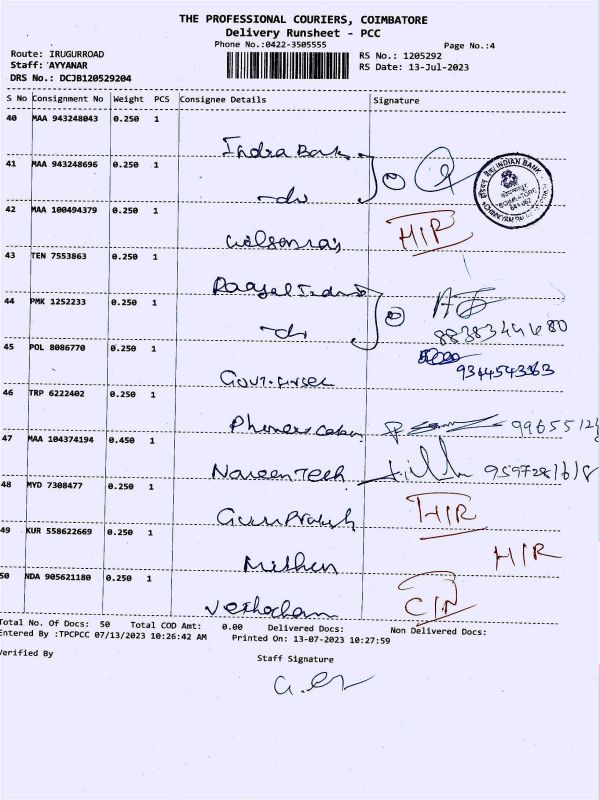 THE PROFESSIONAL COURIERS, COIMBATORE
Delivery Runsheet - PCC
Phone No.:0422-3505555
Page No.:4
Route: IRUGURROAD
RS No.: 1205292
Staff: AYYANAR
RS Date: 13-Jul-2023
DRS No.: DCJB120529204
S No Consignment No Weight PCS Consignee Details Signature
40 MAA 943248043 0.250 1
Indra Bank
41 MAA 943248696 0.250 1
-do
INDIAN BANK
42 MAA 100494379 0.250 1
HIR
43 TEN 7553863 0.250 1
44 PMK 1252233 0.250 1
-do
45 POL 8086770 0.250 1
9344543363
46 TRP 6222402 0.250 1
47 MAA 104374194 0.450 1
Naveen Tech
48 MYD 7308477 0.250 1
HIR
49 KUR 558622669 0.250 1
Mithun HIR
50 NDA 905621180 0.250 1
Total No. Of Docs: 50 Total COD Amt: 0.00 Delivered Docs: Non Delivered Docs:
Entered By :TPCPCC 07/13/2023 10:26:42 AM Printed On: 13-07-2023 10:27:59
Verified By
Staff Signature